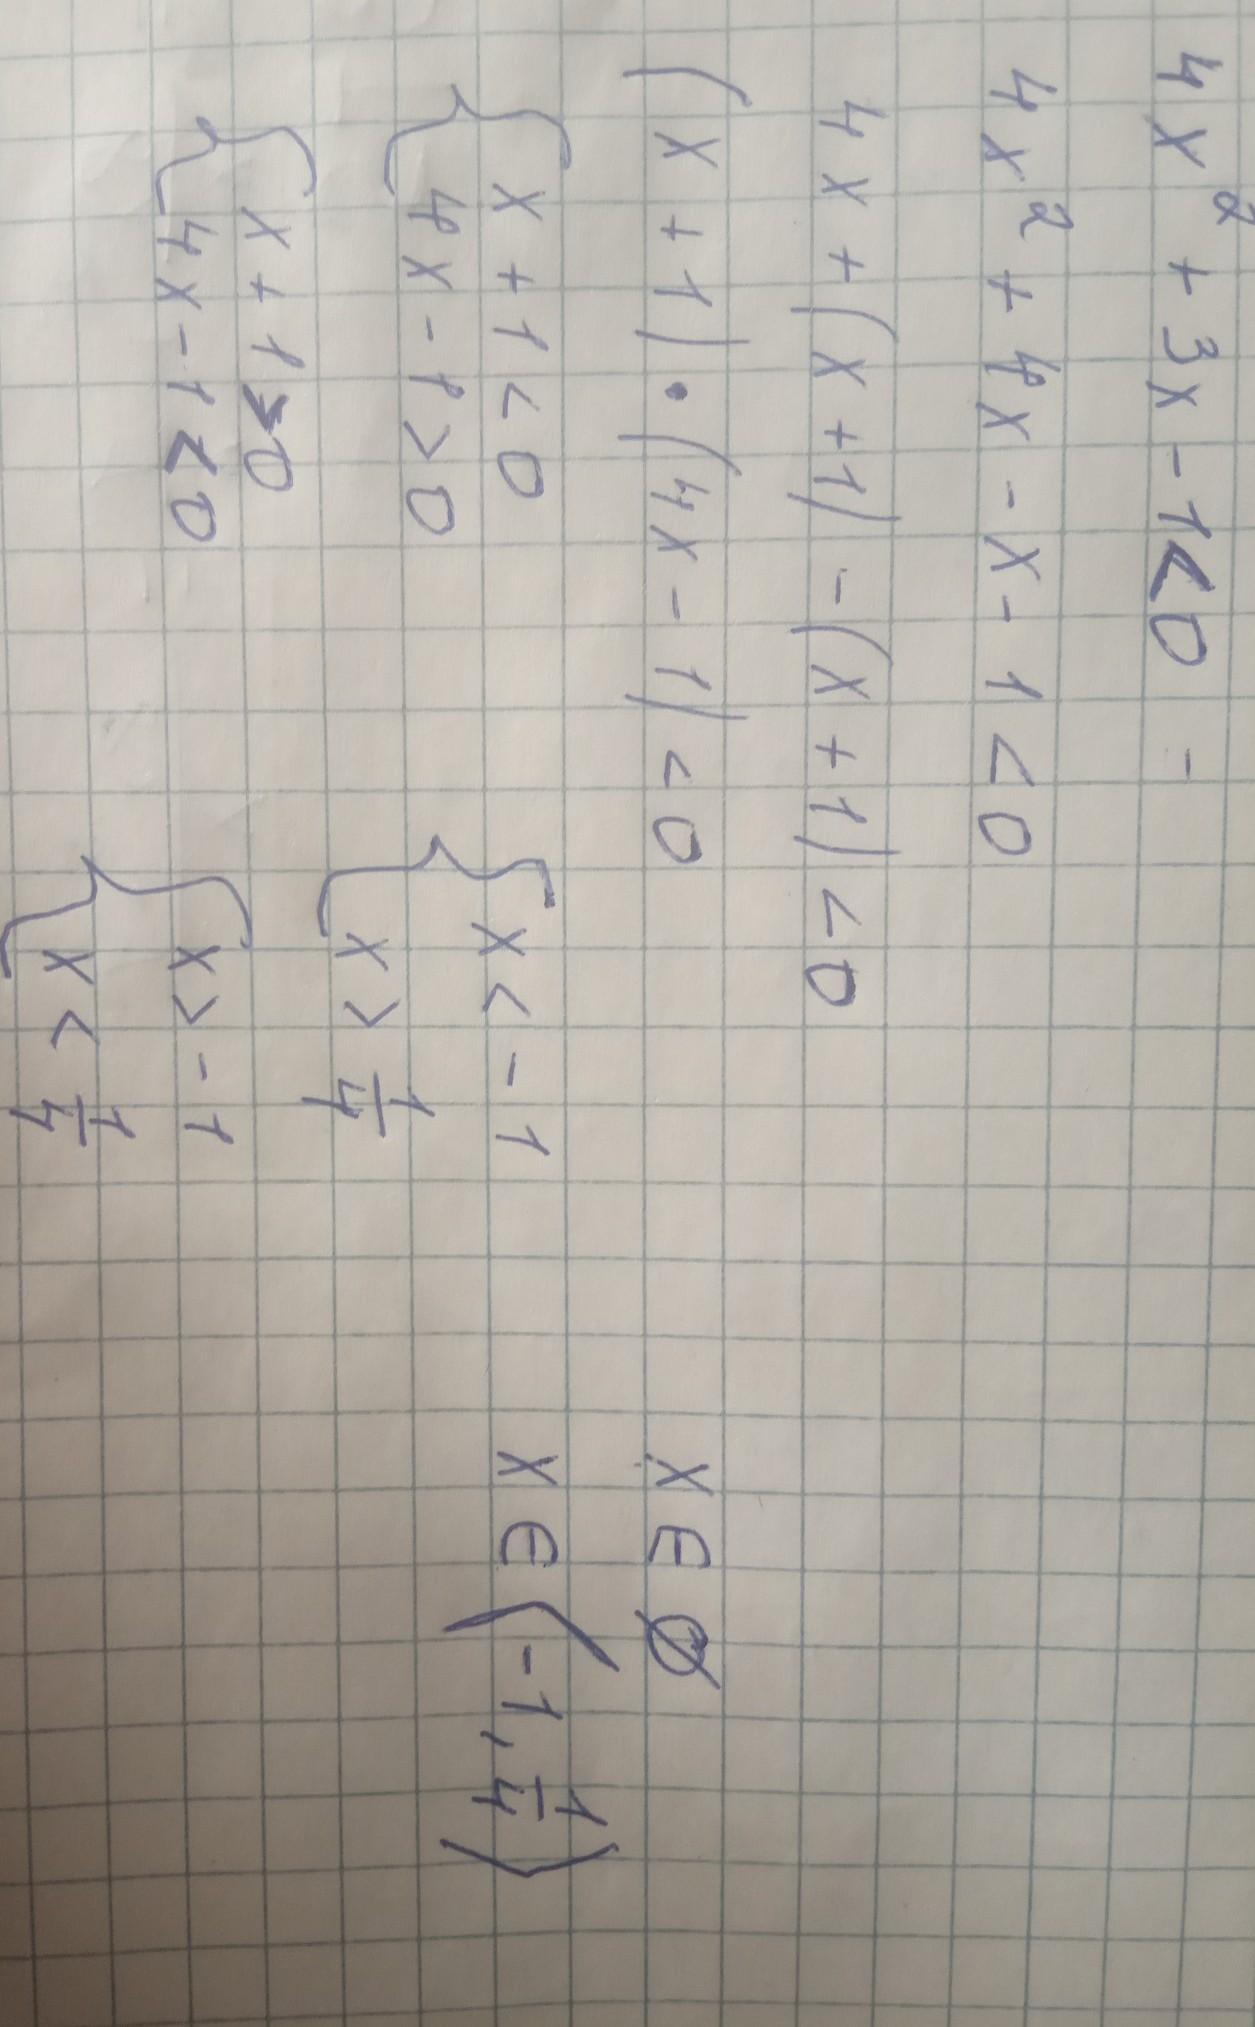 4x² + 3x - 1 < 0 -
4x² + 4x - x - 1 < 0
4x + (x + 1) - (x + 1) < 0
(x + 1) • (4x - 1) < 0
{ x + 1 < 0
4x - 1 > 0
{ x + 1 > 0
4x - 1 < 0
{ x < - 1
x > 1/4
{ x > - 1
x < 1/4
x ∈ Ø
x ∈ (- 1, 1/4)